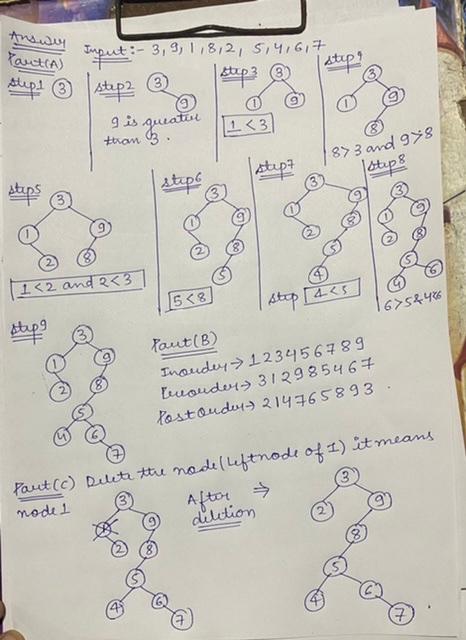 Answer
Input:- 3, 9, 1, 8, 2, 5, 4, 6, 7
Part(A)
Step1
3
Step2
3
9
9 is greater
than 3.
Step3
3
1 9
1 < 3
Step4
3
1 9
8
8>3 and 9>8
Step5
3
1 9
2 8
1<2 and 2<3
Step6
3
1 9
2 8
5
5<8
Step7
3
1 9
2 8
5
4
Step 4<5
Step8
3
1 9
2 8
5
4 6
6>5 & 4<6
Step9
3
1 9
2 8
5
4 6
7
Part(B)
Inorder → 1 2 3 4 5 6 7 8 9
Preorder → 3 1 2 9 8 5 4 6 7
Post Order → 2 1 4 7 6 5 8 9 3.
Part(C) Delete the node (left node of 1) it means
node 1
3
9
2 8
5
4 6
7
After ⇒
deletion
3
2 9
8
5
4 6
7